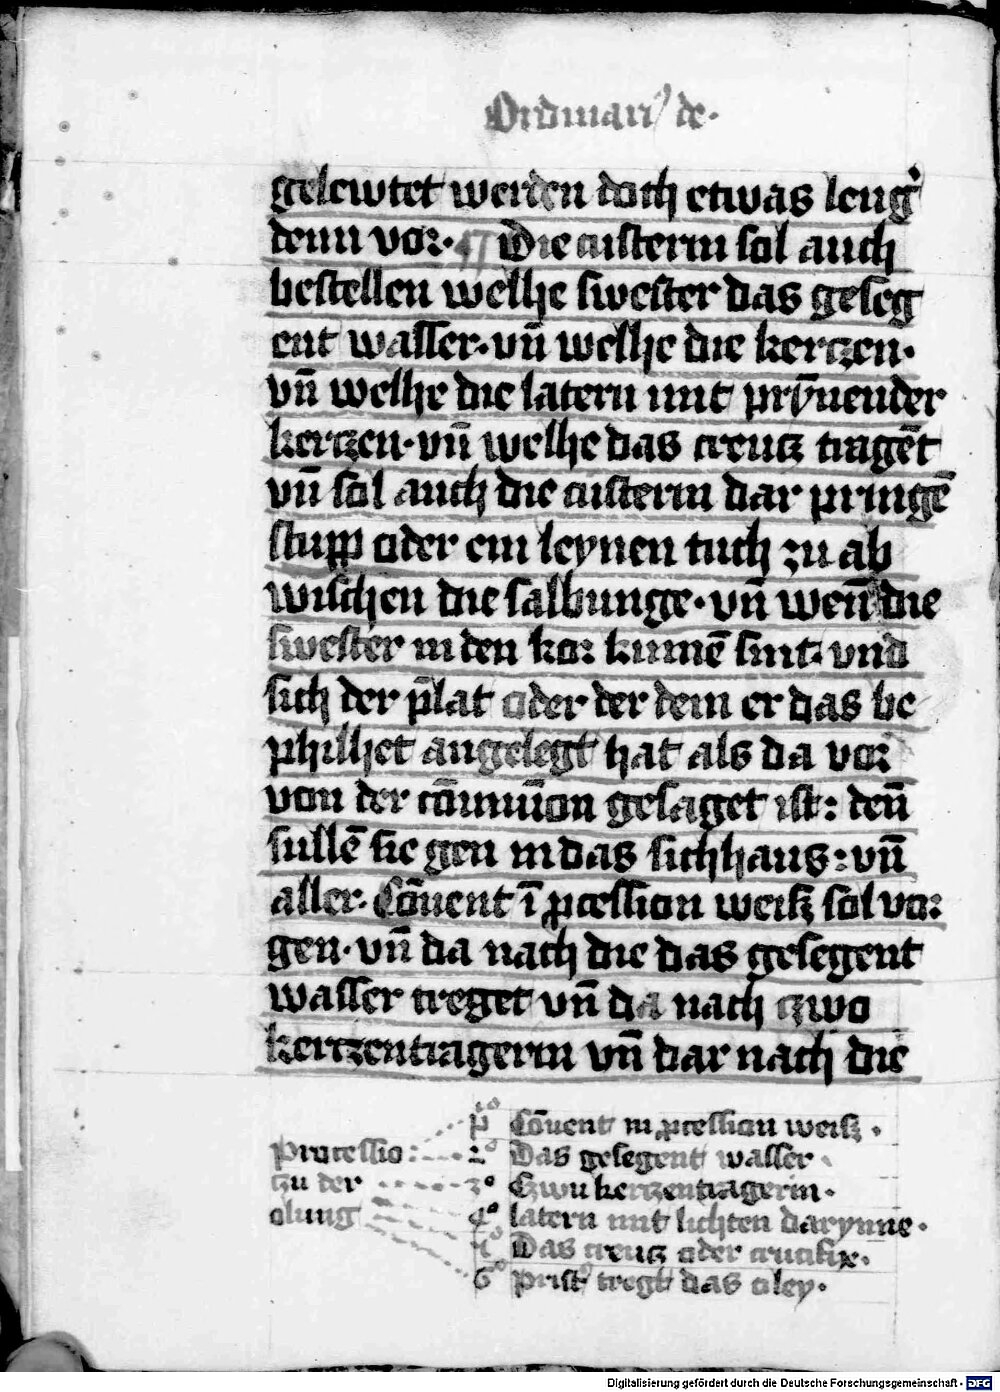 Ordinari⁹ de·
gelewtet werden doch etwas leng̓
denn vor· Die custerin sol auch
bestellen welhe swester das geseg
ent wasser· vn̄ welhe die kertzen·
vn̄ welhe die latern mit prȳnender
kertzen· vn̄ welhe das creutz tragēt
vn̄ sol auch die custerin dar pringē
stupp oder ein leynen tuch zu ab
wischen die salbunge· vn̄ wen̄ die
swester in den kor kumē sint· vnd
sich der p̄lat oder der dem er das be
philhet angelegt hat als da vor
von der cōmuīon gesaget ist: den̄
sullē sie gen in das sichhaus: vn̄
aller· Cōuent ī ꝓcession weisz sol vor
gen· vn̄ da nach die das gesegent
wasser treget vn̄ da nach czwo
kertzentragerin vn̄ dar nach die
pº Cōuent in ꝓcession weisz ·
Processio: 2º Das gesegent wasser·
zu der 3º Czwu kertzentragerin·
olung 4º latern mit lichten darynne·
5º Das creutz oder crucifix·
6º Prist⁹ tregt das oley·
Digitalisierung gefördert durch die Deutsche Forschungsgemeinschaft - DFG